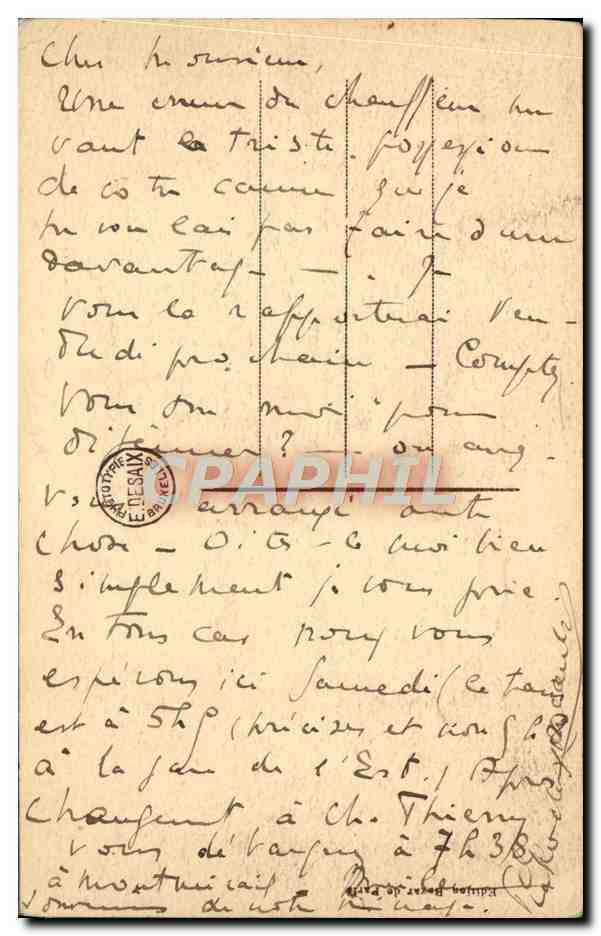 Cher Monsieur,
Une erreur du chauffeur me
vaut la triste possession
de votre canne que je
ne voulais pas faire d'une
davantage — Je
vous la rapporterai Ven-
dredi prochain — Comptez
vous sur moi pour
déjeuner ? — ou avez-
vous arrangé autre
chose — Dites-le moi bien
simplement je vous prie.
En tous cas nous vous
espérons ici Samedi (le train
est à 5h (précises et non
à la gare de l'Est.) Après
changement à Ch. Thierry
vous débarquez à 7h38
à Montmirail
Souvenirs de notre ménage.
PHOTOTYPIE E. DESAIX BRUXELLES
CPAPHIL
Edition Bazar de Paris